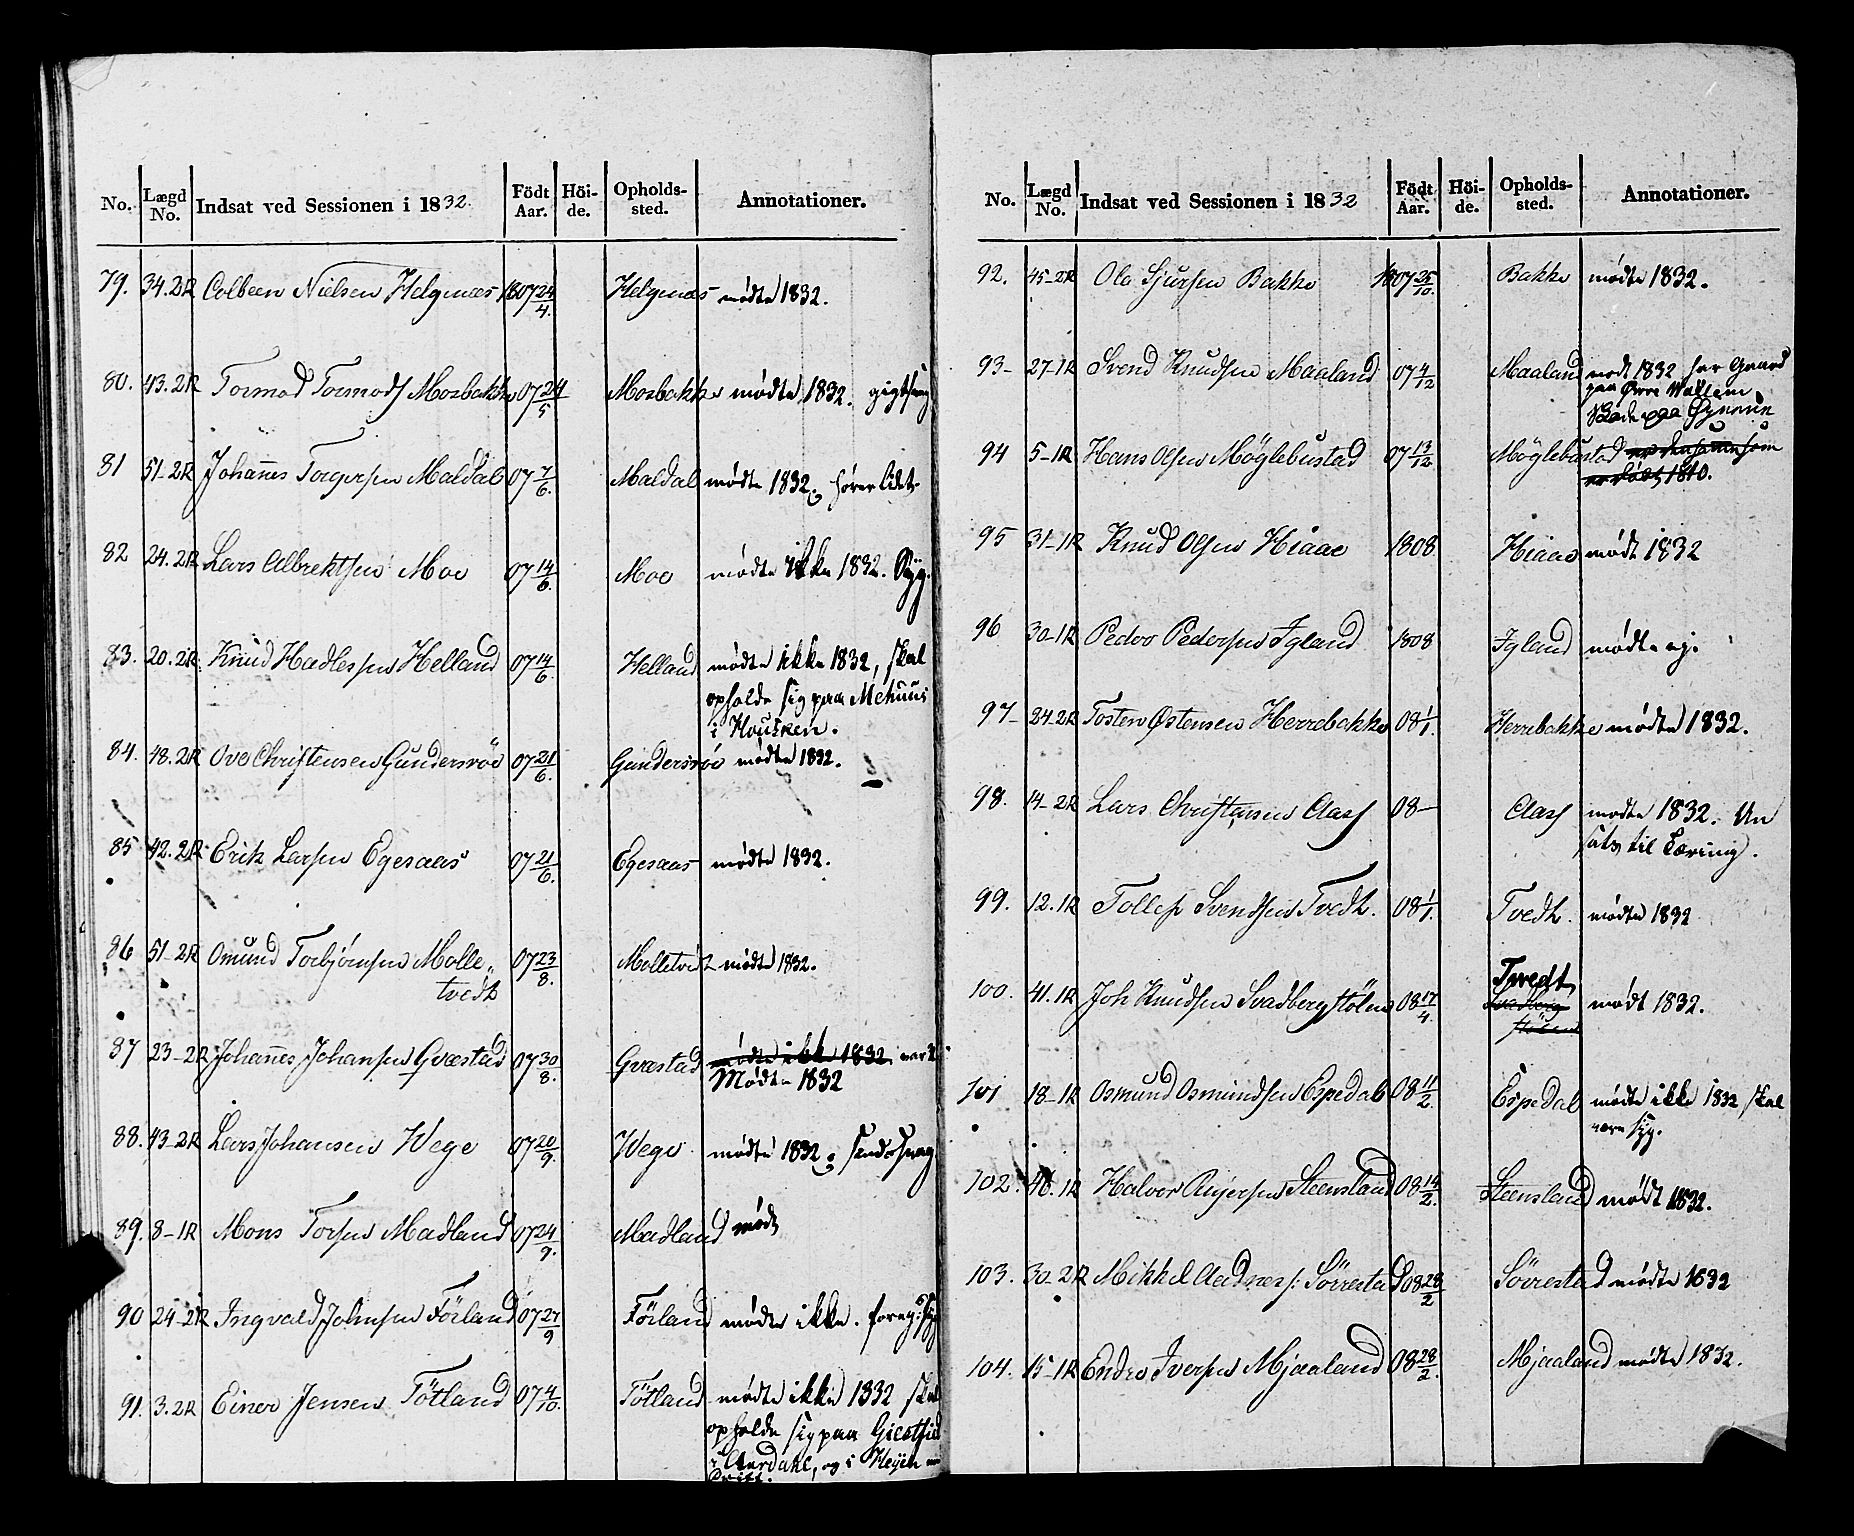 No. Lægd No. Indsat ved Sessionen i 1832. Födt Aar. Höi-de. Opholds-sted. Annotationer.
79. 34.2R Colbeen Nielsen Helgenæs 1807 24/4. Helgenæs mødte 1832.
80. 43.2R Tormod Tormods Mosbakke 07 24/5 Mosbakke mødte 1832. gigtsvag
81 51-2R Johannes Torgersen Maldal 07 7/6. Maldal mødte 1832. hører lidet
82 24.2R Lars Albrektsen Moe 07 14/6. Moe mødte ikke 1832. Syg.
83. 20.2R Knud Hadlessen Helland 07 14/6 Helland mødte ikke 1832, skal
opholde sig paa Mehuus
i Housken.
84. 48.2R Ove Christensen Gundersröe 07 21/6. Gundersröe mødte 1832.
85 42.2R Erik Larsen Egesaas 07 21/6. Egesaas mødte 1832.
86 51-2R Omund Torbjörnsen Molle-
tvedt 07 23/8. Molletvedt mødte 1832.
87 23-2R Johannes Johansen Gvæstad 07 30/8. Gvæstad mødte ikke 1832.
Mødte 1832
88. 43-2R Lars Johansen Wege 07 20/9. Wege mødte 1832.
89. 8-1R Mons Torsen Madland 07 24/9. Madland mødt
90 24-2R Ingvald Johnsen Förland 07 27/9 Förland mødte ikke. foreg: syg
91. 3.2R Einer Jensen Tötland 07 4/10. Tötland mødte ikke 1832 skal
opholde sig paa
i Aardahl, og i
No. Lægd No. Indsat ved Sessionen i 1832 Födt Aar. Höi-de. Opholds-sted. Annotationer.
92. 45-2R Ole Sjursen Bakke 1807 25/10. Bakke mødte 1832.
93- 27-1R Svend Knudsen Maaland 07 4/12 Maaland mødt 1832 har Gaard
paa Øvre
94 5-1R Hans Olsen Möglebustad 07 13/12 Möglebustad er den samme som
er født 1810.
95 31-1R Knud Olsen Hiaae 1808 Hiaae mødt 1832
96 30-1R Peder Pedersen Igland 1808 Igland mødte ej
97- 24-2R Tosten Østensen Herrebakke 08 1/1. Herrebakke mødte 1832.
98. 14-2R Lars Christensen Aass 08- Aass mødte 1832. Un
sats til Læring.
99. 12.1R Tollef Svendsen Tvedt. 08 1/1. Tvedt. mødte 1832
100. 41.1R Joh Knudsen Svadbergstölen 08 17/4. Tvedt
Svadberg
stölen mødt 1832.
101 18-1R Osmund Osmundsen Espedal 08 11/2. Espedal mødte ikke 1832 skal
være syg.
102. 46.1R Halvor Steensland 08 14/2. Steensland mødt 1832.
103. 30.2R Mikkel Aadnes: Sörrestad 08 28/2 Sörrestad mødte 1832
104. 15-1R Endre Iversen Mjaaland 08 28/2. Mjaaland mødte 1832.